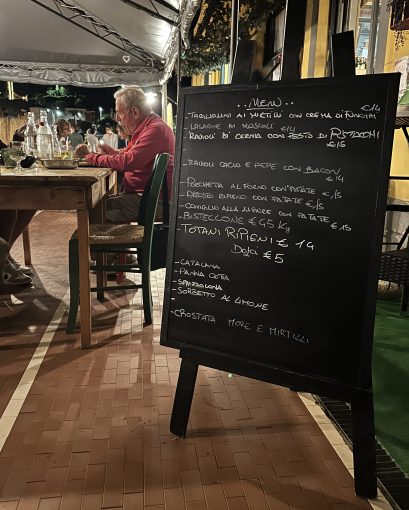 ..MENU..
- TAGLIOLINI AI MIRTILLI CON CREMA DI FUNGHI €14
- LASAGNE AI MUSCOLI €14
- RAVIOLI DI CERNIA CON PESTO DI PISTACCHI €15
- RAVIOLI CACIO E PEPE CON BACON €14
- PORCHETTA AL FORNO CON PATATE €15
- ARROSTO RIPIENO CON PATATE €15
- CONIGLIO ALLA LIGURE CON PATATE €15
- BISTECCONE €45 Kg
TOTANI RIPIENI €14
Dolci €5
- CATALANA
- PANNA COTTA
- SORBETTO AL LIMONE
- CROSTATA MORE E MIRTILLI